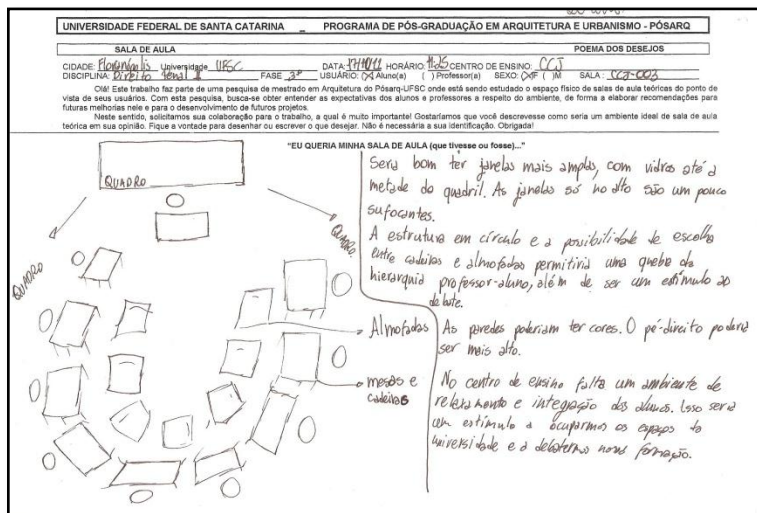 UNIVERSIDADE FEDERAL DE SANTA CATARINA _ PROGRAMA DE PÓS-GRADUAÇÃO EM ARQUITETURA E URBANISMO - PÓSARQ
SALA DE AULA POEMA DOS DESEJOS
CIDADE: Florianópolis Universidade UFSC DATA: 17/10/11 HORÁRIO: 11:25 CENTRO DE ENSINO: CCJ
DISCIPLINA: Direito Penal II FASE 3ª USUÁRIO: (X) Aluno(a) ( ) Professor(a) SEXO: (X)F ( )M SALA: CCJ-003
Olá! Este trabalho faz parte de uma pesquisa de mestrado em Arquitetura do Pósarq-UFSC onde está sendo estudado o espaço físico de salas de aula teóricas do ponto de
vista de seus usuários. Com esta pesquisa, busca-se obter entender as expectativas dos alunos e professores a respeito do ambiente, de forma a elaborar recomendações para
futuras melhorias nele e para o desenvolvimento de futuros projetos.
Neste sentido, solicitamos sua colaboração para o trabalho, a qual é muito importante! Gostaríamos que você descrevesse como seria um ambiente ideal de sala de aula
teórica em sua opinião. Fique a vontade para desenhar ou escrever o que desejar. Não é necessária a sua identificação. Obrigada!
"EU QUERIA MINHA SALA DE AULA (que tivesse ou fosse)..."
QUADRO
QUADRO
QUADRO
Almofadas
mesas e
cadeiras
Seria bom ter janelas mais amplas, com vidros até a
metade do quadril. As janelas só no alto são um pouco
sufocantes.
A estrutura em círculo e a possibilidade de escolha
entre cadeiras e almofadas permitiria uma quebra da
hierarquia professor-aluno, além de ser um estímulo ao
debate.
As paredes poderiam ter cores. O pé-direito poderia
ser mais alto.
No centro de ensino falta um ambiente de
relaxamento e integração dos alunos. Isso seria
um estímulo a ocuparmos os espaços da
universidade e a debatermos nossa formação.